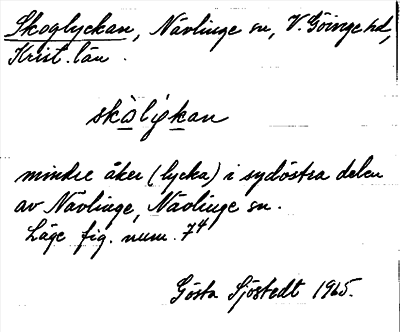 Skoglyckan, Nävlinge sn, V. Göinge hd,
Krist. län.
skò̀lýkan
mindre åker (lycka) i sydöstra delen
av Nävlinge, Nävlinge sn.
Läge fig. num. 7⁴
Gösta Sjöstedt 1965.